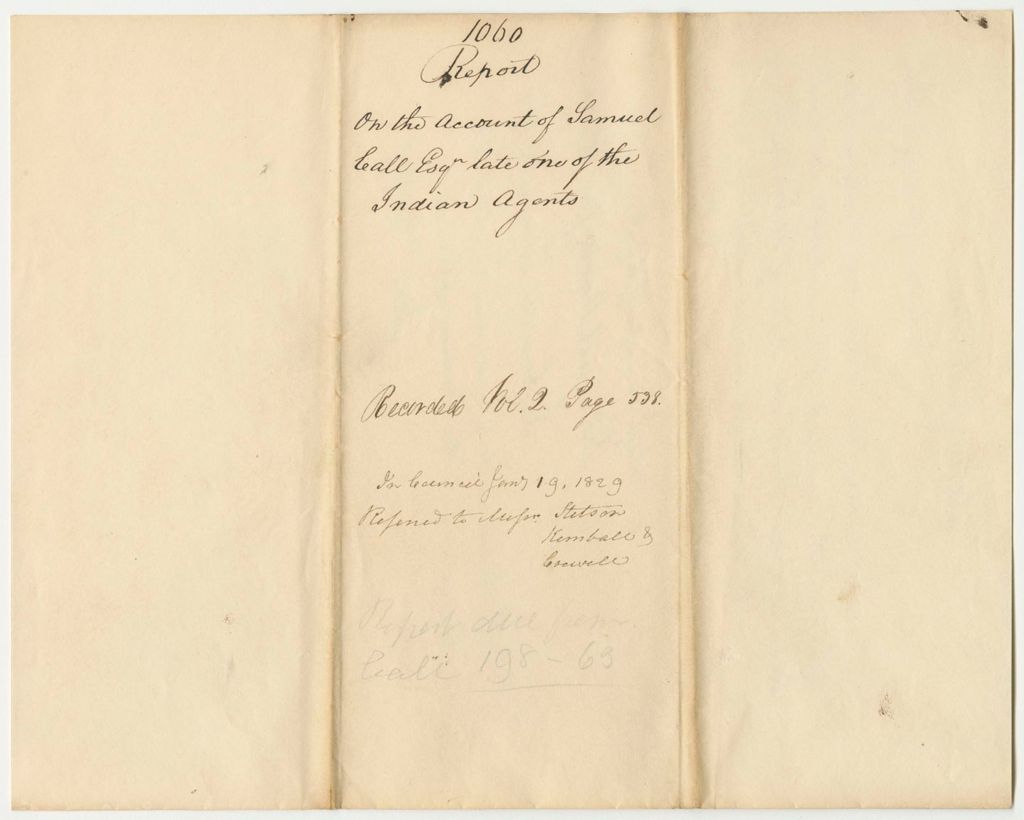 1060
Report
On the Account of Samuel
Call Esqr late one of the
Indian Agents
Recorded Vol. 2. Page 538.
In Council Jany 19, 1829
Referred to Messrs. Stetson
Kemball &
Cowell
Report due from
Call 198-63